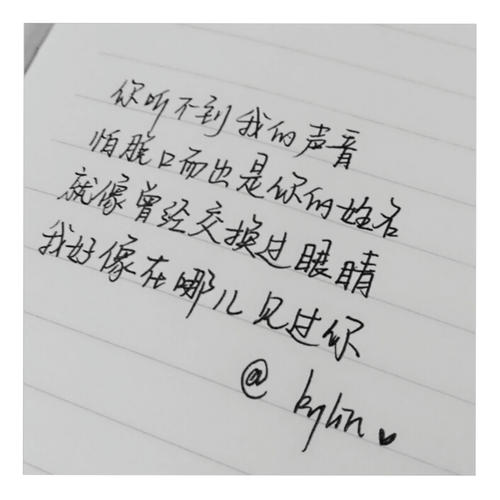 你听不到我的声音
怕脱口而出是你的姓名
就像曾经交换过眼睛
我好像在哪儿见过你
@ kylin